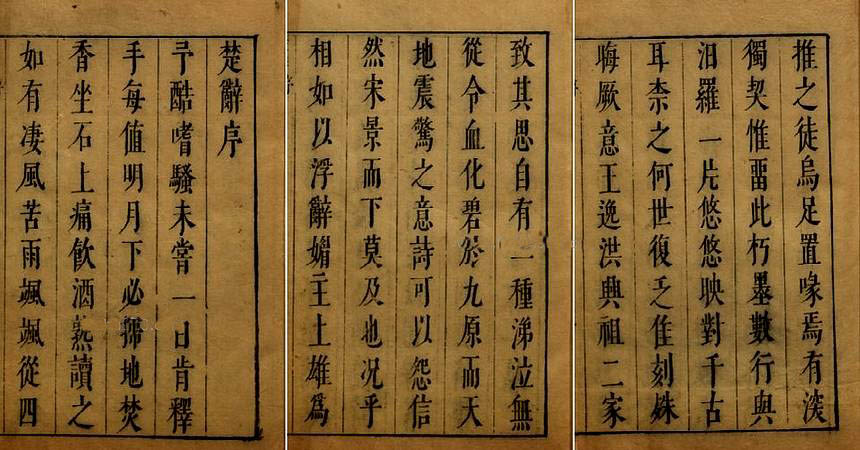 楚辭序
予酷嗜騷未嘗一日肯釋
手每值明月下必掃地焚
香坐石上痛飲酒熟讀之
如有凄風苦雨颯颯從四
致其思自有一種涕泣無
從令血化碧於九原而天
地震驚之意詩可以怨信
然宋景而下莫及也况乎
相如以浮辭媚主上雄爲
推之徒烏足置喙焉有淡
獨契惟畱此朽墨數行與
汨羅一片悠悠映對千古
耳柰之何世復乏佳刻殊
晦厥意王逸洪興祖二家